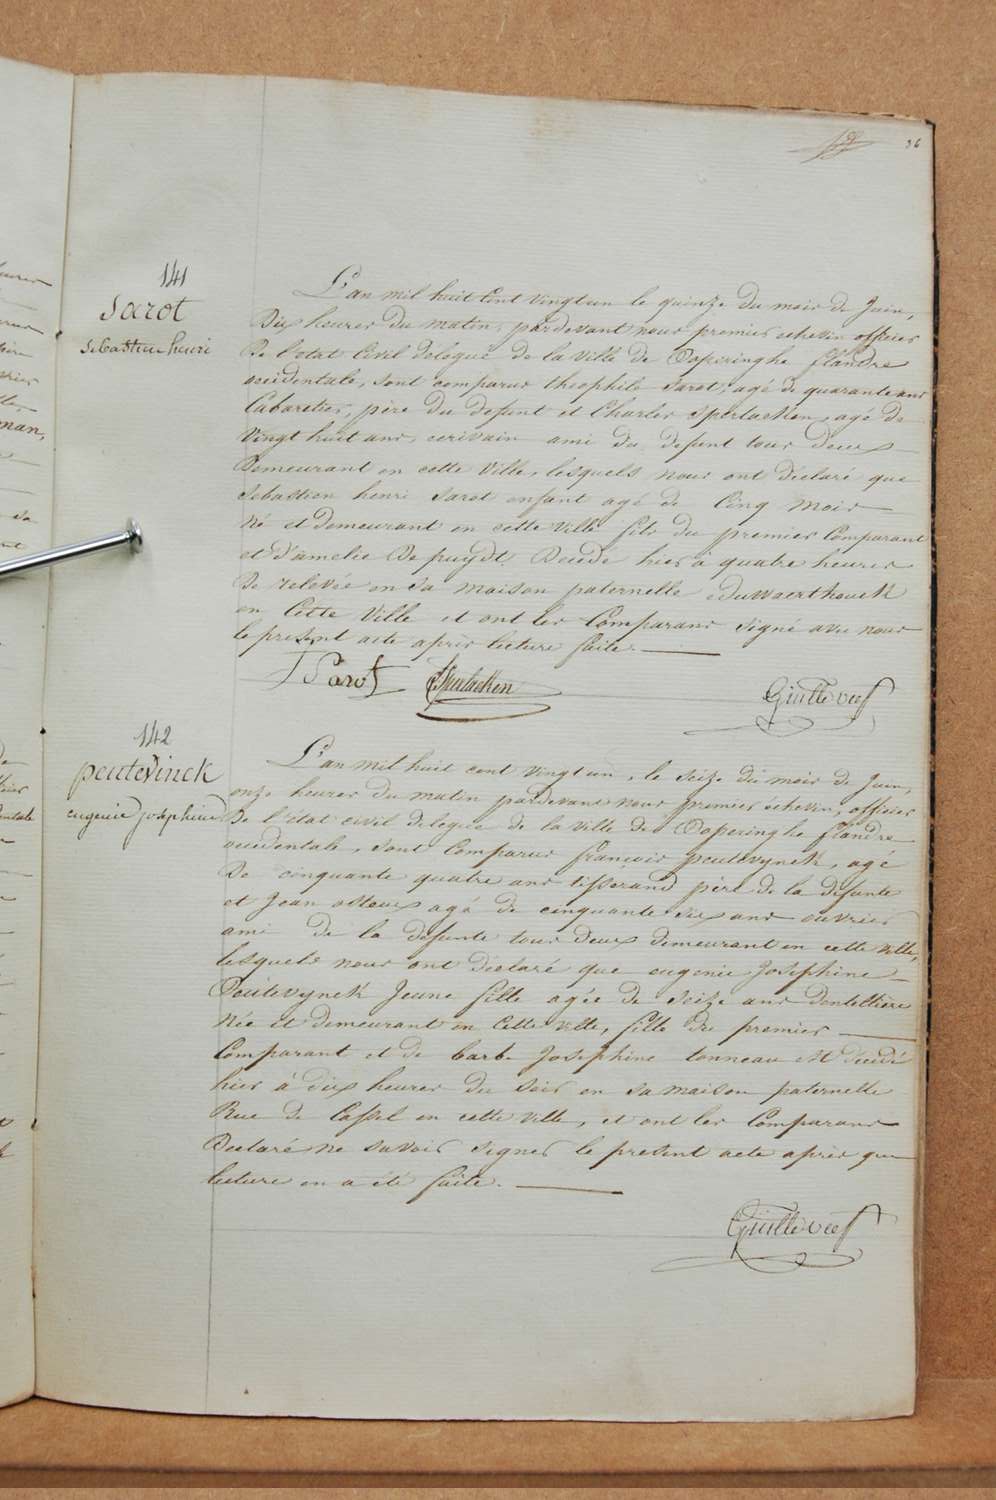 36
141
Sarot
Sebastien henri
L'an mil huit cent vingt un le quinze du mois de Juin,
Dix heures du matin, pardevant nous premier échevin officier
De l'état Civil delegué de la ville de Poperinghe flandre
occidentale, sont comparus théophile Sarot, agé de quarante ans
Cabaretier, père du defunt et Charles Sperlaeken, agé de
Vingt huit ans, ecrivain ami du defunt tous deux
Demeurant en cette Ville, lesquels nous ont déclaré que
Sebastien henri Sarot enfant agé de Cinq mois
Né et demeurant en cette Ville fils du premier Comparant
et d'amelie De puydt Decedé hier à quatre heures
De relevée en sa maison paternelle
en Cette Ville et ont les Comparans signé avec nous
le present acte après lecture faite.
Sarot Sperlaeken
142
peutevinck
eugenie josephine
L'an mil huit cent vingt un, le seize du mois de Juin,
onze heures du matin pardevant nous premier échevin, officier
De l'état civil delegué de la ville de Poperinghe flandre
occidentale, sont Comparus françois peutevynck, agé
De cinquante quatre ans tisserand père de la defunte
et Jean agé de cinquante six ans ouvrier
ami de la defunte tous deux demeurant en cette ville,
lesquels nous ont déclaré que eugenie Josephine
Peutevynck Jeune fille agée de seize ans Dentellière
Née et demeurant en Cette Ville, fille du premier
Comparant et de barbe Josephine tonneau est décedé
hier à dix heures du soir en sa maison paternelle
Rue de Cassel en cette ville, et ont les Comparans
Declaré ne savoir signer le present acte après que
lecture en a été faite.